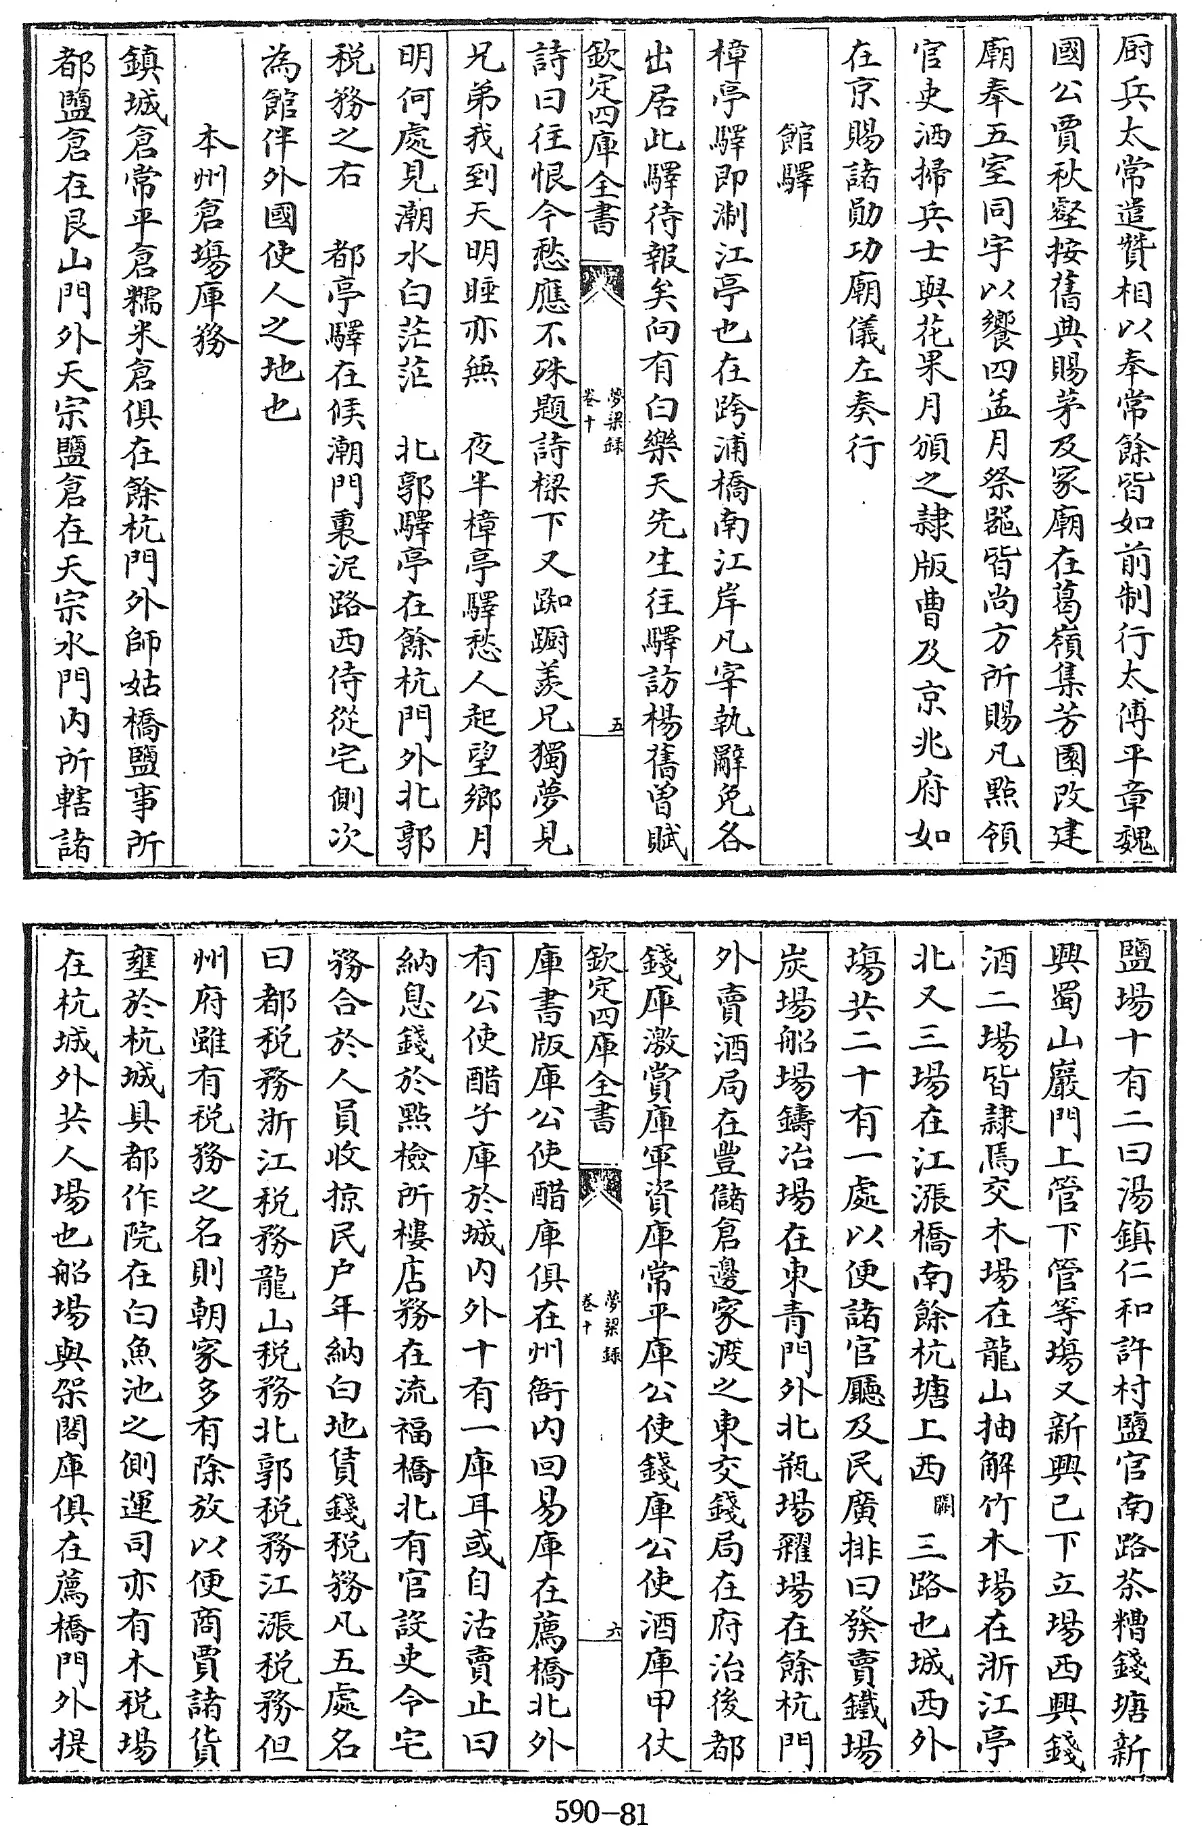 厨兵太常遣贊相以奉常餘皆如前制行太傅平章魏
國公賈秋壑按舊典賜茅及家廟在葛嶺集芳園改建
廟奉五室同宇以饗四孟月祭器皆尚方所賜凡點領
官吏洒掃兵士與花果月頒之隷版曹及京兆府如
在京賜諸勛功廟儀左奏行
館驛
樟亭驛即浙江亭也在跨浦橋南江岸凡宰執辭免各
出居此驛待報矣向有白樂天先生往驛訪楊舊曽賦
欽定四庫全書
夢梁録
卷十
五
詩曰往恨今愁應不殊題詩樑下又踟蹰羨兄獨夢見
兄弟我到天明睡亦無 夜半樟亭驛愁人起望鄉月
明何處見潮水白茫茫 北郭驛亭在餘杭門外北郭
税務之右 都亭驛在𠉀潮門裏泥路西侍從宅側次
為館伴外國使人之地也
本州倉塲庫務
鎮城倉常平倉糯米倉俱在餘杭門外師姑橋鹽事所
都鹽倉在艮山門外天宗鹽倉在天宗水門内所轄諸
鹽場十有二曰湯鎮仁和許村鹽官南路茶糟錢塘新
興蜀山巖門上管下管等塲又新興已下立場西興錢
酒二場皆隷焉交木場在龍山抽解竹木場在浙江亭
北又三場在江漲橋南餘杭塘上西闕三路也城西外
塲共二十有一處以便諸官廳及民廣排曰發賣鐵場
炭場船場鑄冶場在東青門外北瓶場糴場在餘杭門
外賣酒局在豐儲倉邊家渡之東交錢局在府治後都
錢庫激賞庫軍資庫常平庫公使錢庫公使酒庫甲仗
欽定四庫全書
夢梁録
卷十
六
庫書版庫公使醋庫俱在州衙内回易庫在薦橋北外
有公使醋子庫於城内外十有一庫耳或自沽賣止曰
納息錢於點檢所樓店務在流福橋北有官設吏令宅
務合於人員收掠民户年納白地賃錢税務凡五處名
曰都税務浙江税務龍山税務北郭税務江漲税務但
州府雖有税務之名則朝家多有除放以便商賈諸貨
壅於杭城具都作院在白魚池之側運司亦有木税場
在杭城外共人場也船場與架閣庫俱在薦橋門外提
590-81